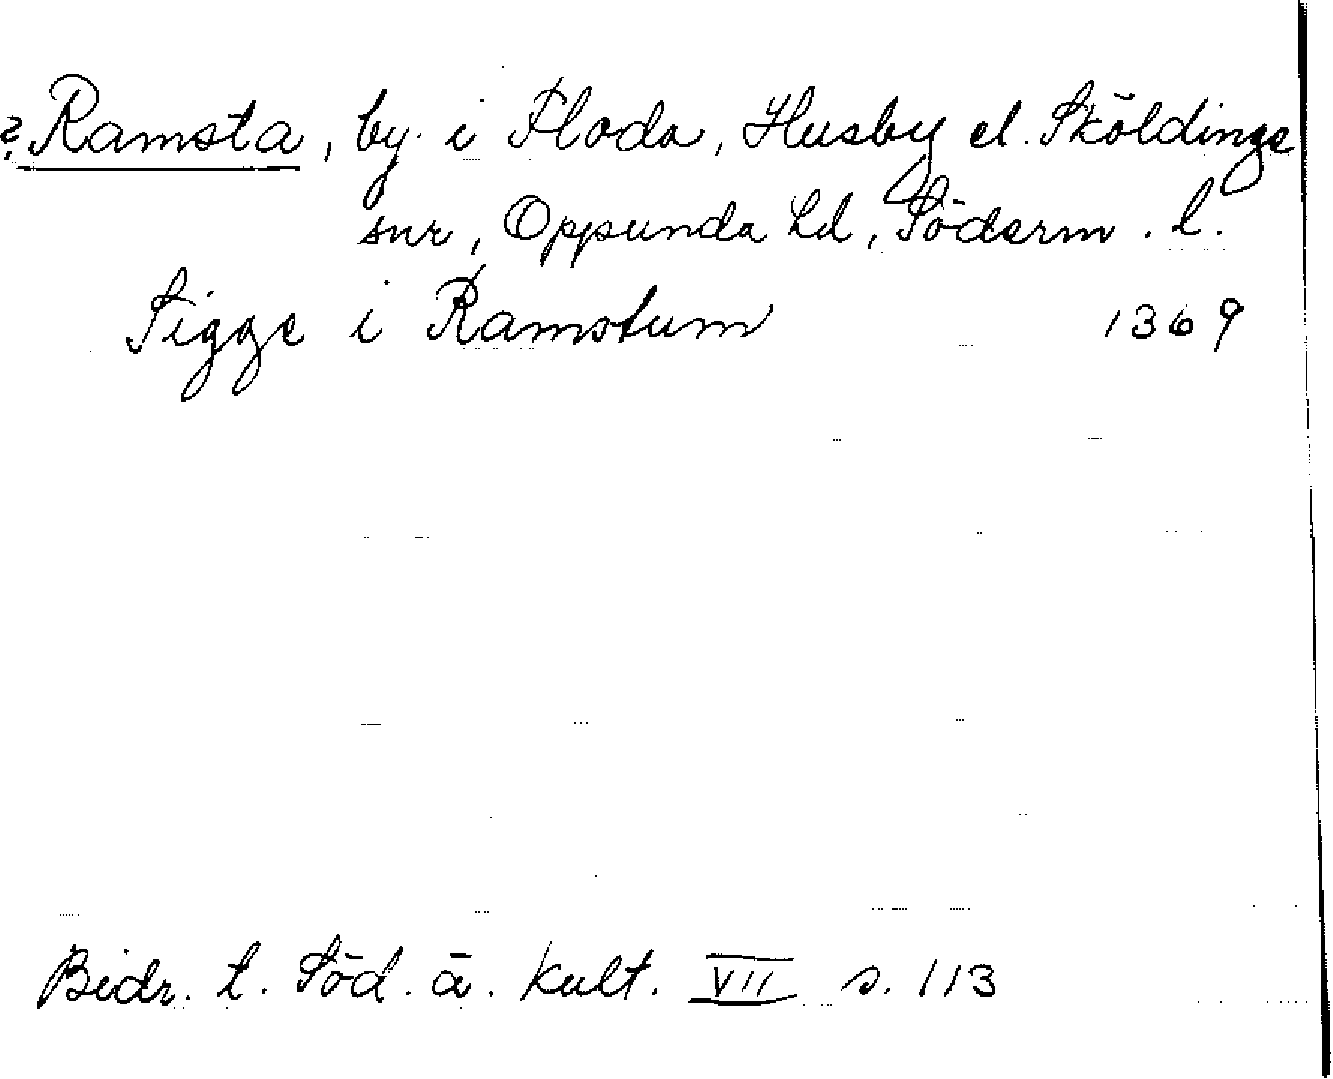 ? Ramsta, by i Floda, Husby el. Sköldinge
snr, Oppunda hd, Söderm. l.
Sigge i Ramstum 1369
Bidr. t. Söd. ä. Kult. VII s. 113